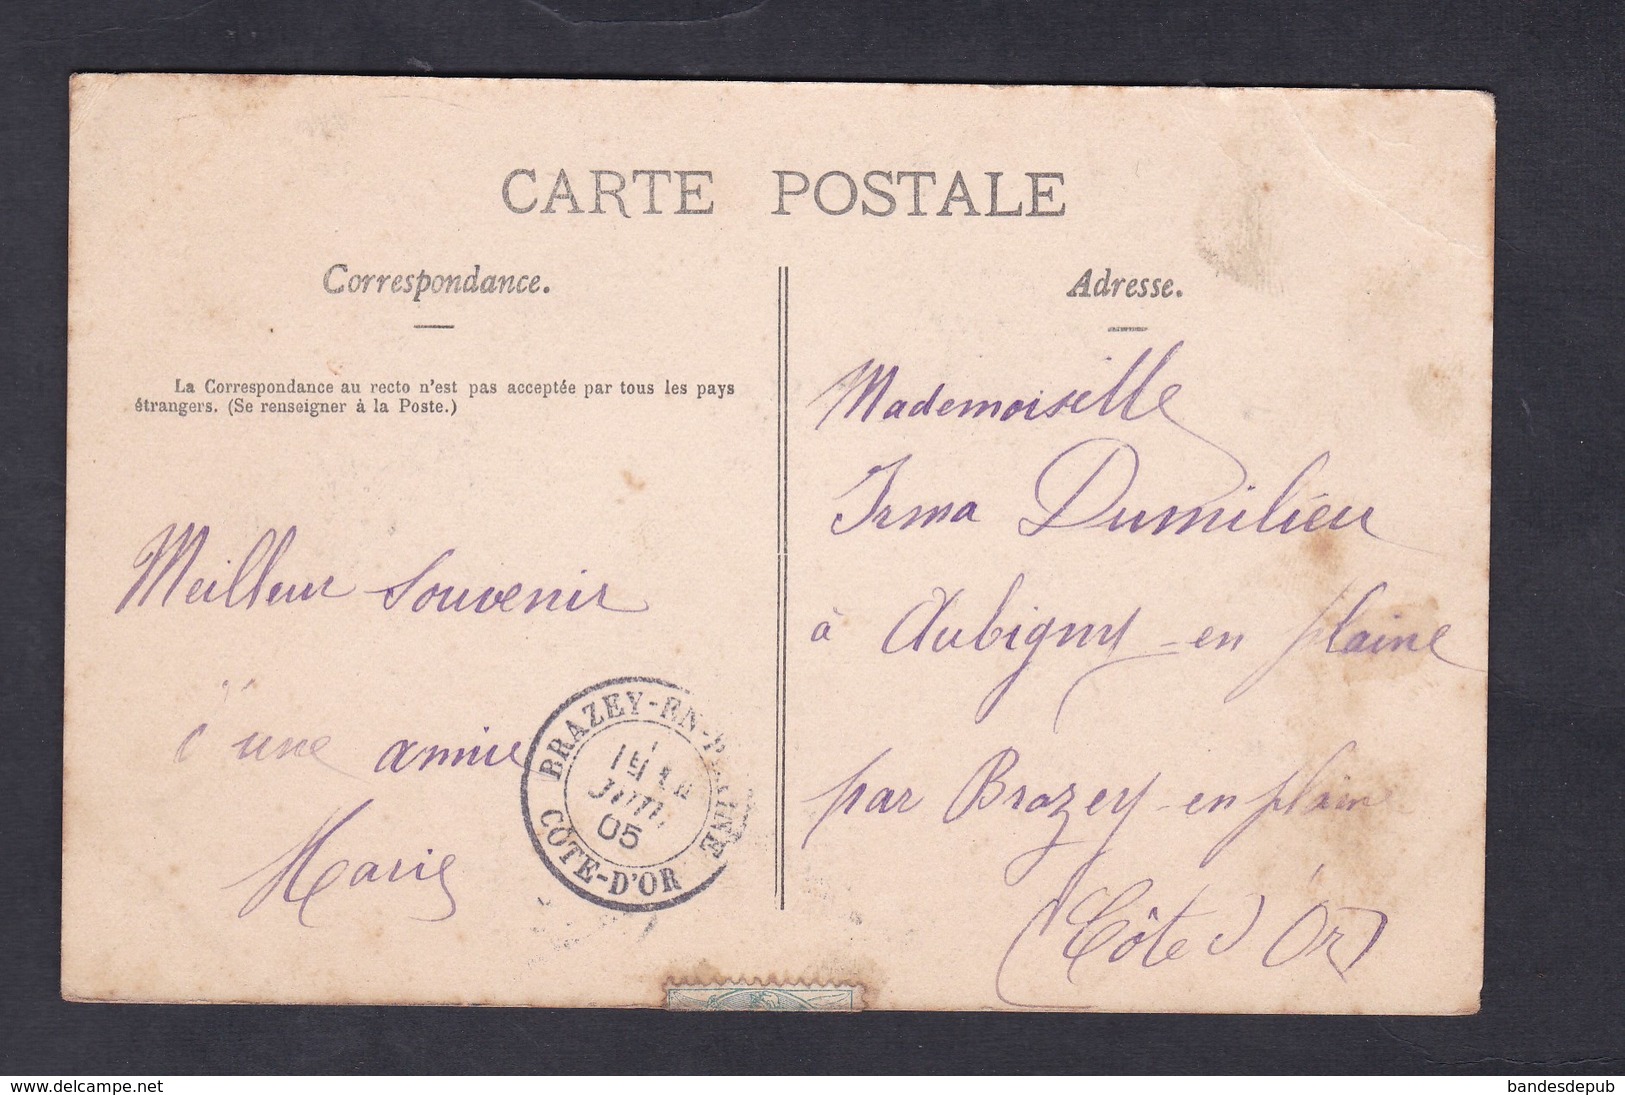 CARTE POSTALE
Correspondance.
La Correspondance au recto n'est pas acceptée par tous les pays
étrangers. (Se renseigner à la Poste.)
Meilleur souvenir
d'une amie
Marie
BRAZEY-EN-PLAINE
CÔTE-D'OR
05
Adresse.
Mademoiselle
Irma Dumilieu
à Aubigny-en plaine
par Brazey-en plaine
(Côte d'Or)
www.delcampe.net
bandesdepub